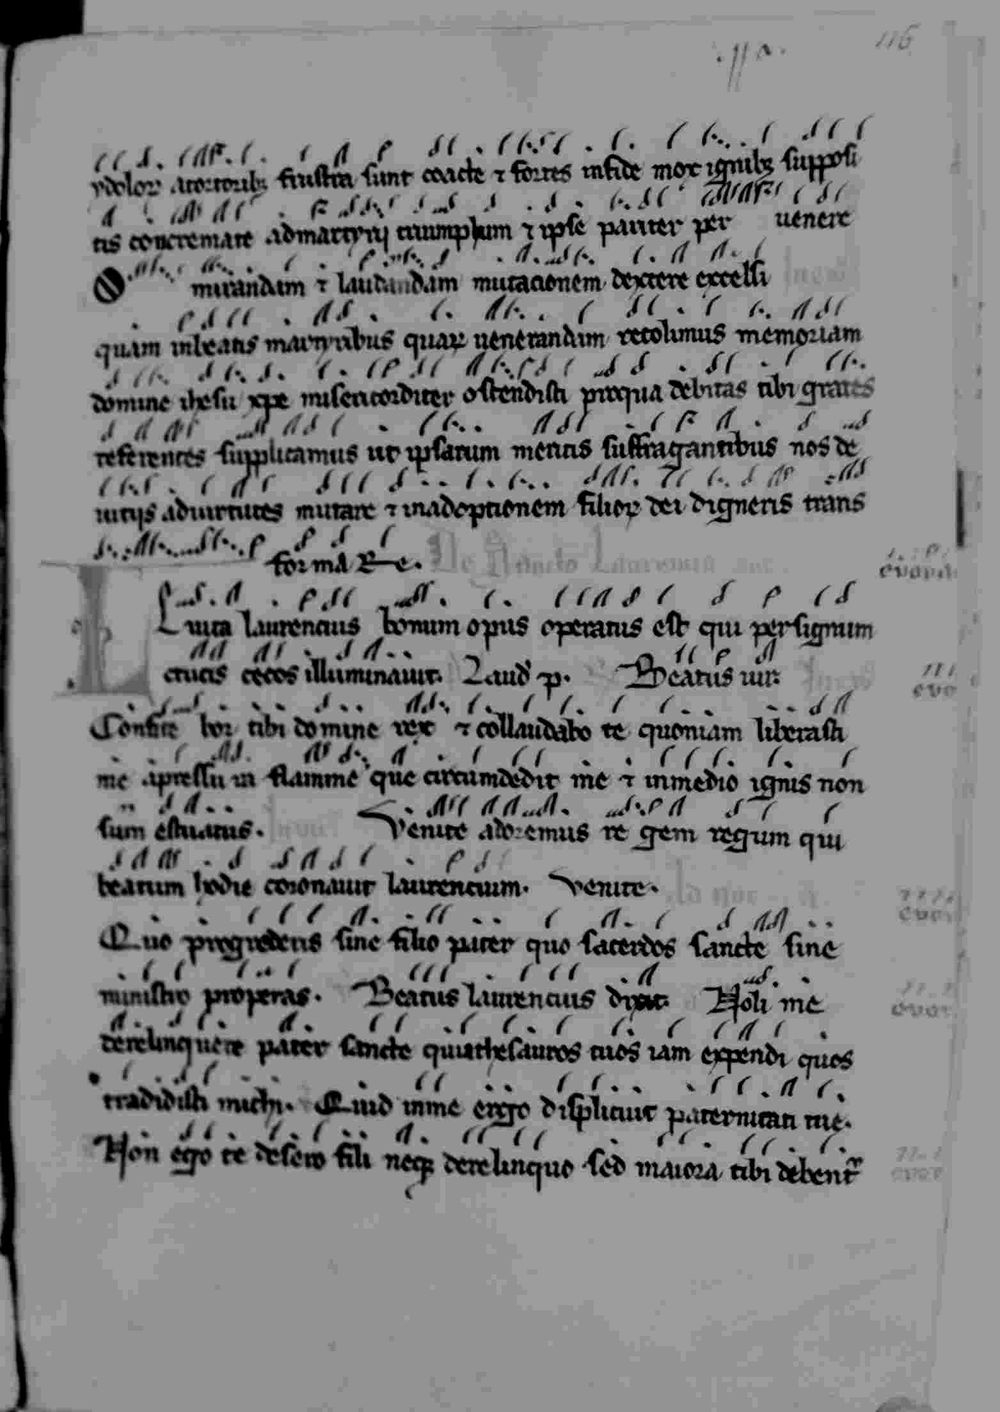 116
ydoloꝝ atortoribꝫ frustra sunt coacte ⁊ fortes infide mox ignibꝫ supposi
tis concremate admartyrij triumphum ⁊ ipse pariter per uenere
O mirandam ⁊ laudandam mutacionem dextere excelsi
quam inbeatis martyribus quaꝝ uenerandam recolimus memoriam
domine ihesu xpe misericorditer ostendisti proqua debitas tibi grates
referentes supplicamus ut ipsarum meritis suffragantibus nos de
uitijs aduirtutes mutare ⁊ inadoptionem filioꝝ dei digneris trans
forma Re. De Sancto Laurencio
euoua
Leuita laurencius bonum opus operatus est qui persignum
crucis cecos illuminauit. Laud p. Beatus uir.
euo
Confite bor tibi domine rex ⁊ collaudabo te quoniam liberasti
me apressura flamme que circumdedit me ⁊ inmedio ignis non
sum estuatus. Venite adoremus re gem regum qui
beatum hodie coronauit laurencium. Venite.
Quo progrederis sine filio pater quo sacerdos sancte sine
ministro properas. Beatus laurencius dixit Noli me
derelinquere pater sancte quiathesauros tuos iam expendi quos
tradidisti michi. Quid inme ergo displicuit paternitati tue.
Non ego te desero fili neqꝫ derelinquo sed maiora tibi debent᷑